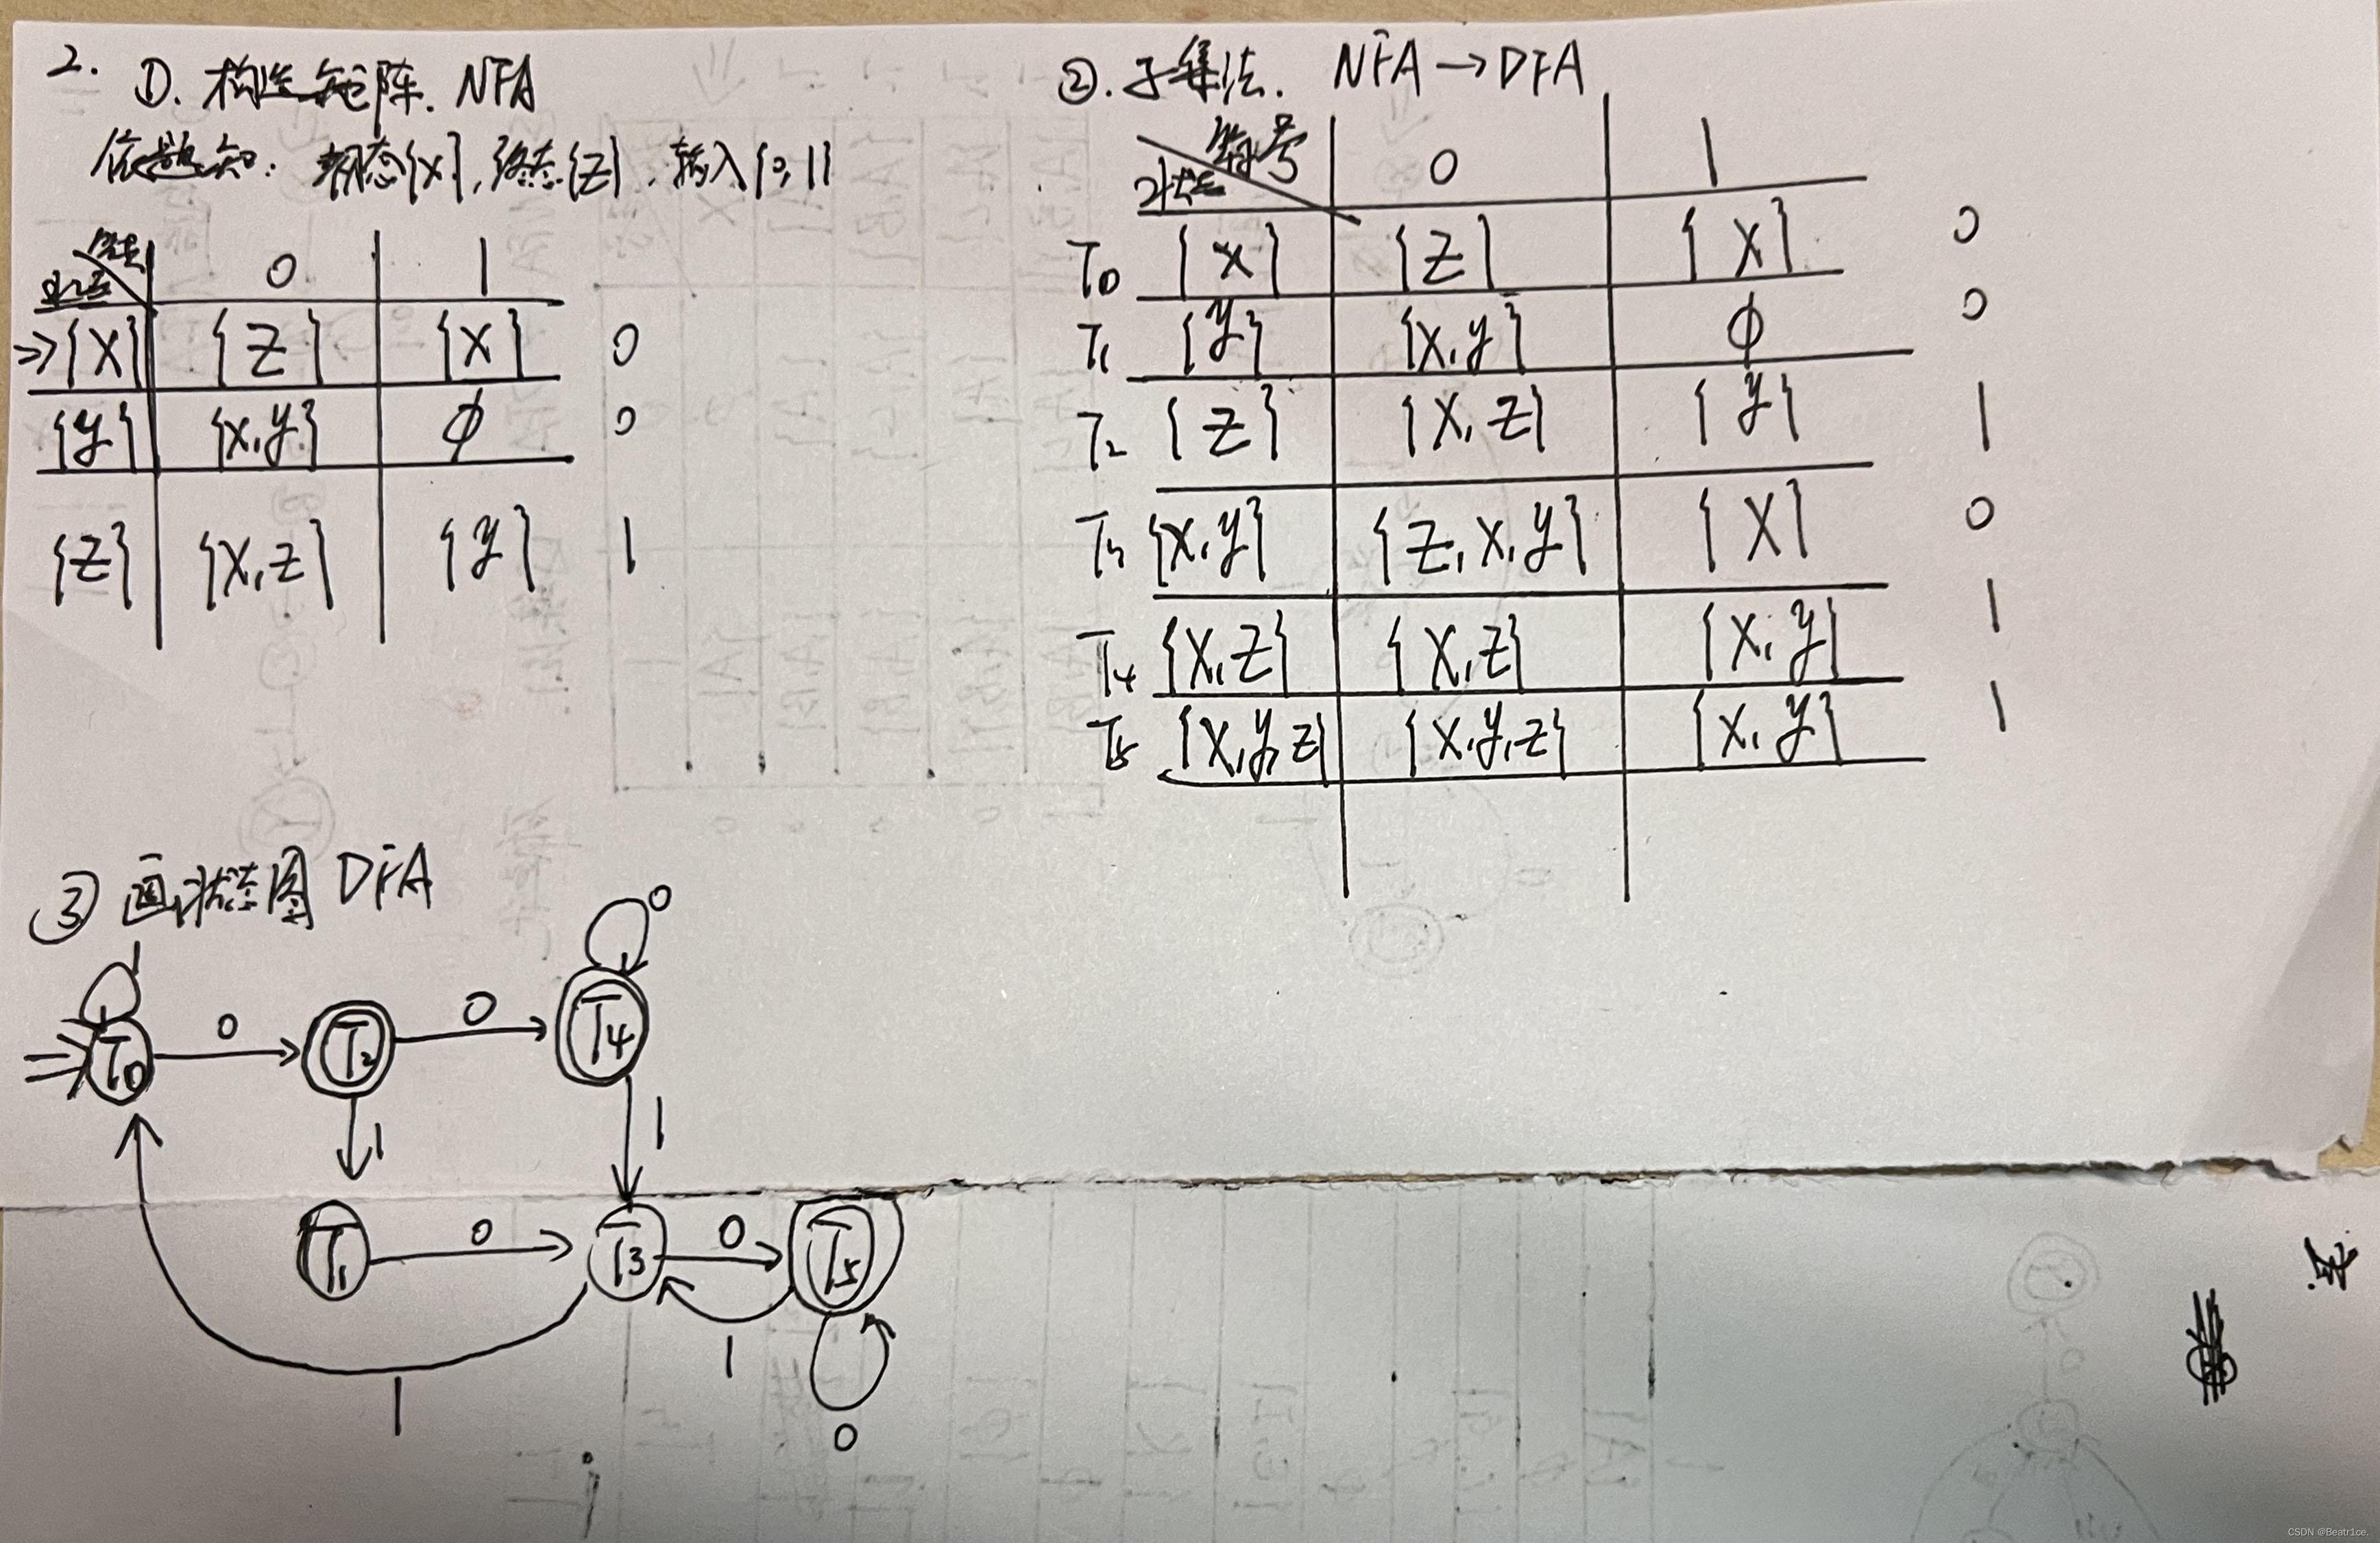 2. ①. 构造矩阵. NFA
依题知: 初态{X}, 终态{Z}. 输入{0,1}
状态 0 1
⇒{X} {Z} {X} 0
{y} {x,y} φ 0
{Z} {X,Z} {y} 1
②. 子集法. NFA→DFA
符号
状态 0 1
T0 {X} {Z} {X} 0
T1 {y} {X,y} φ 0
T2 {Z} {X,Z} {y} 1
T3 {X,y} {Z,X,y} {X} 0
T4 {X,Z} {X,Z} {X,y} 1
T5 {X,y,Z} {X,y,Z} {X,y} 1
③ 画状态图 DFA
0
1
T0 0 T2 0 T4
1 1
T1 0 T3 0 T5
1
1
0
CSDN @Beatr1ce.